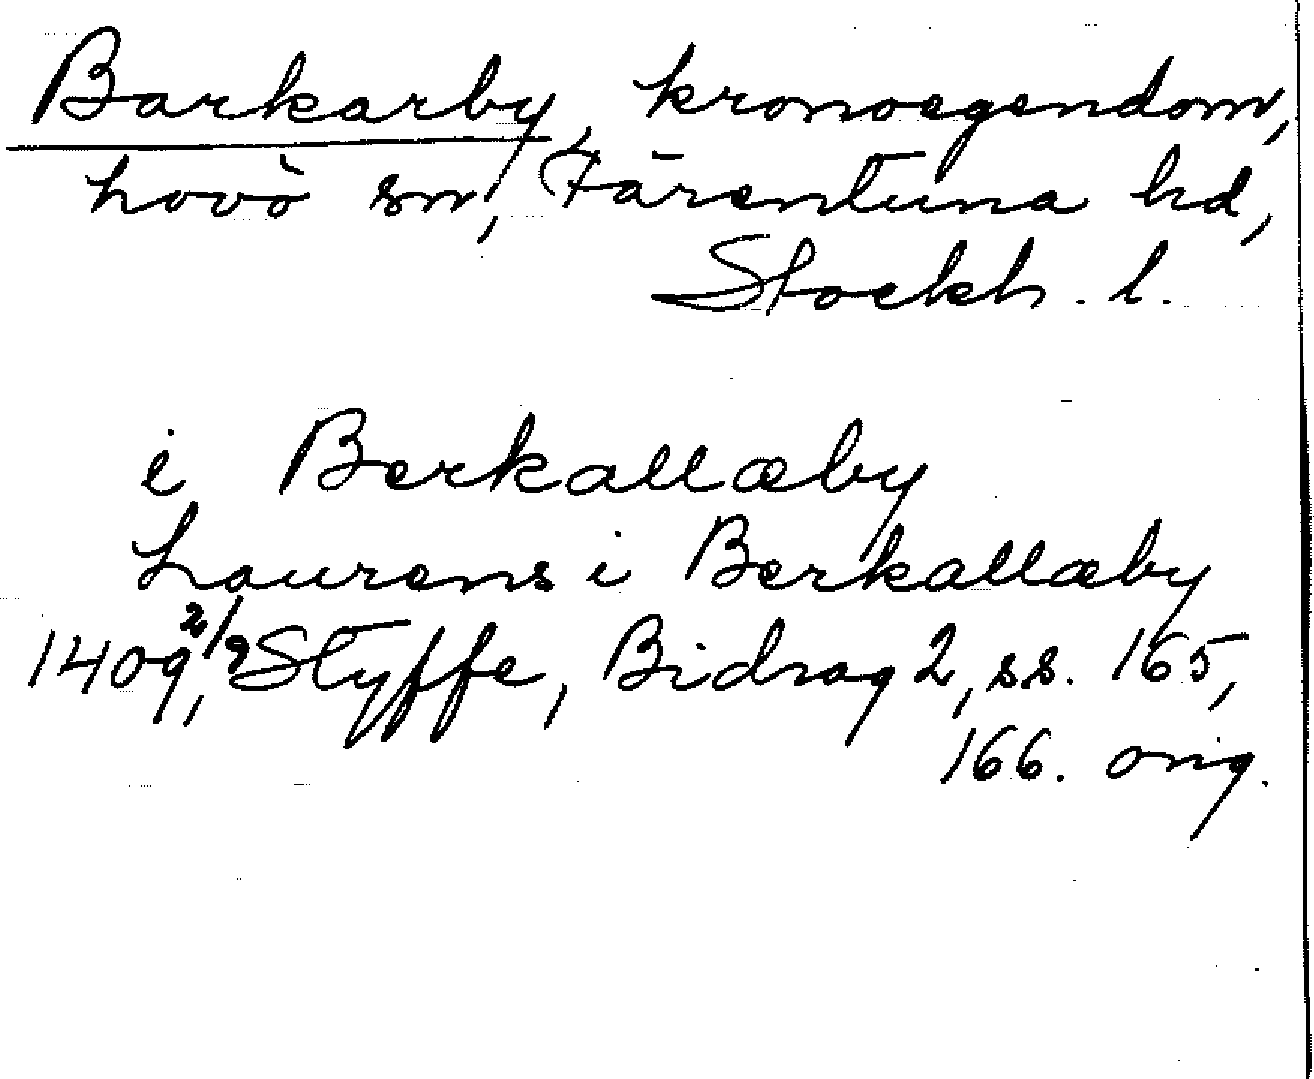 Barkarby, kronoegendom,
Lovö sn, Färentuna hd,
Stockh. l.
i Berkallæby
Laurens i Berkallæby
1409 2/9, Styffe, Bidrag 2, ss. 165,
166. orig.